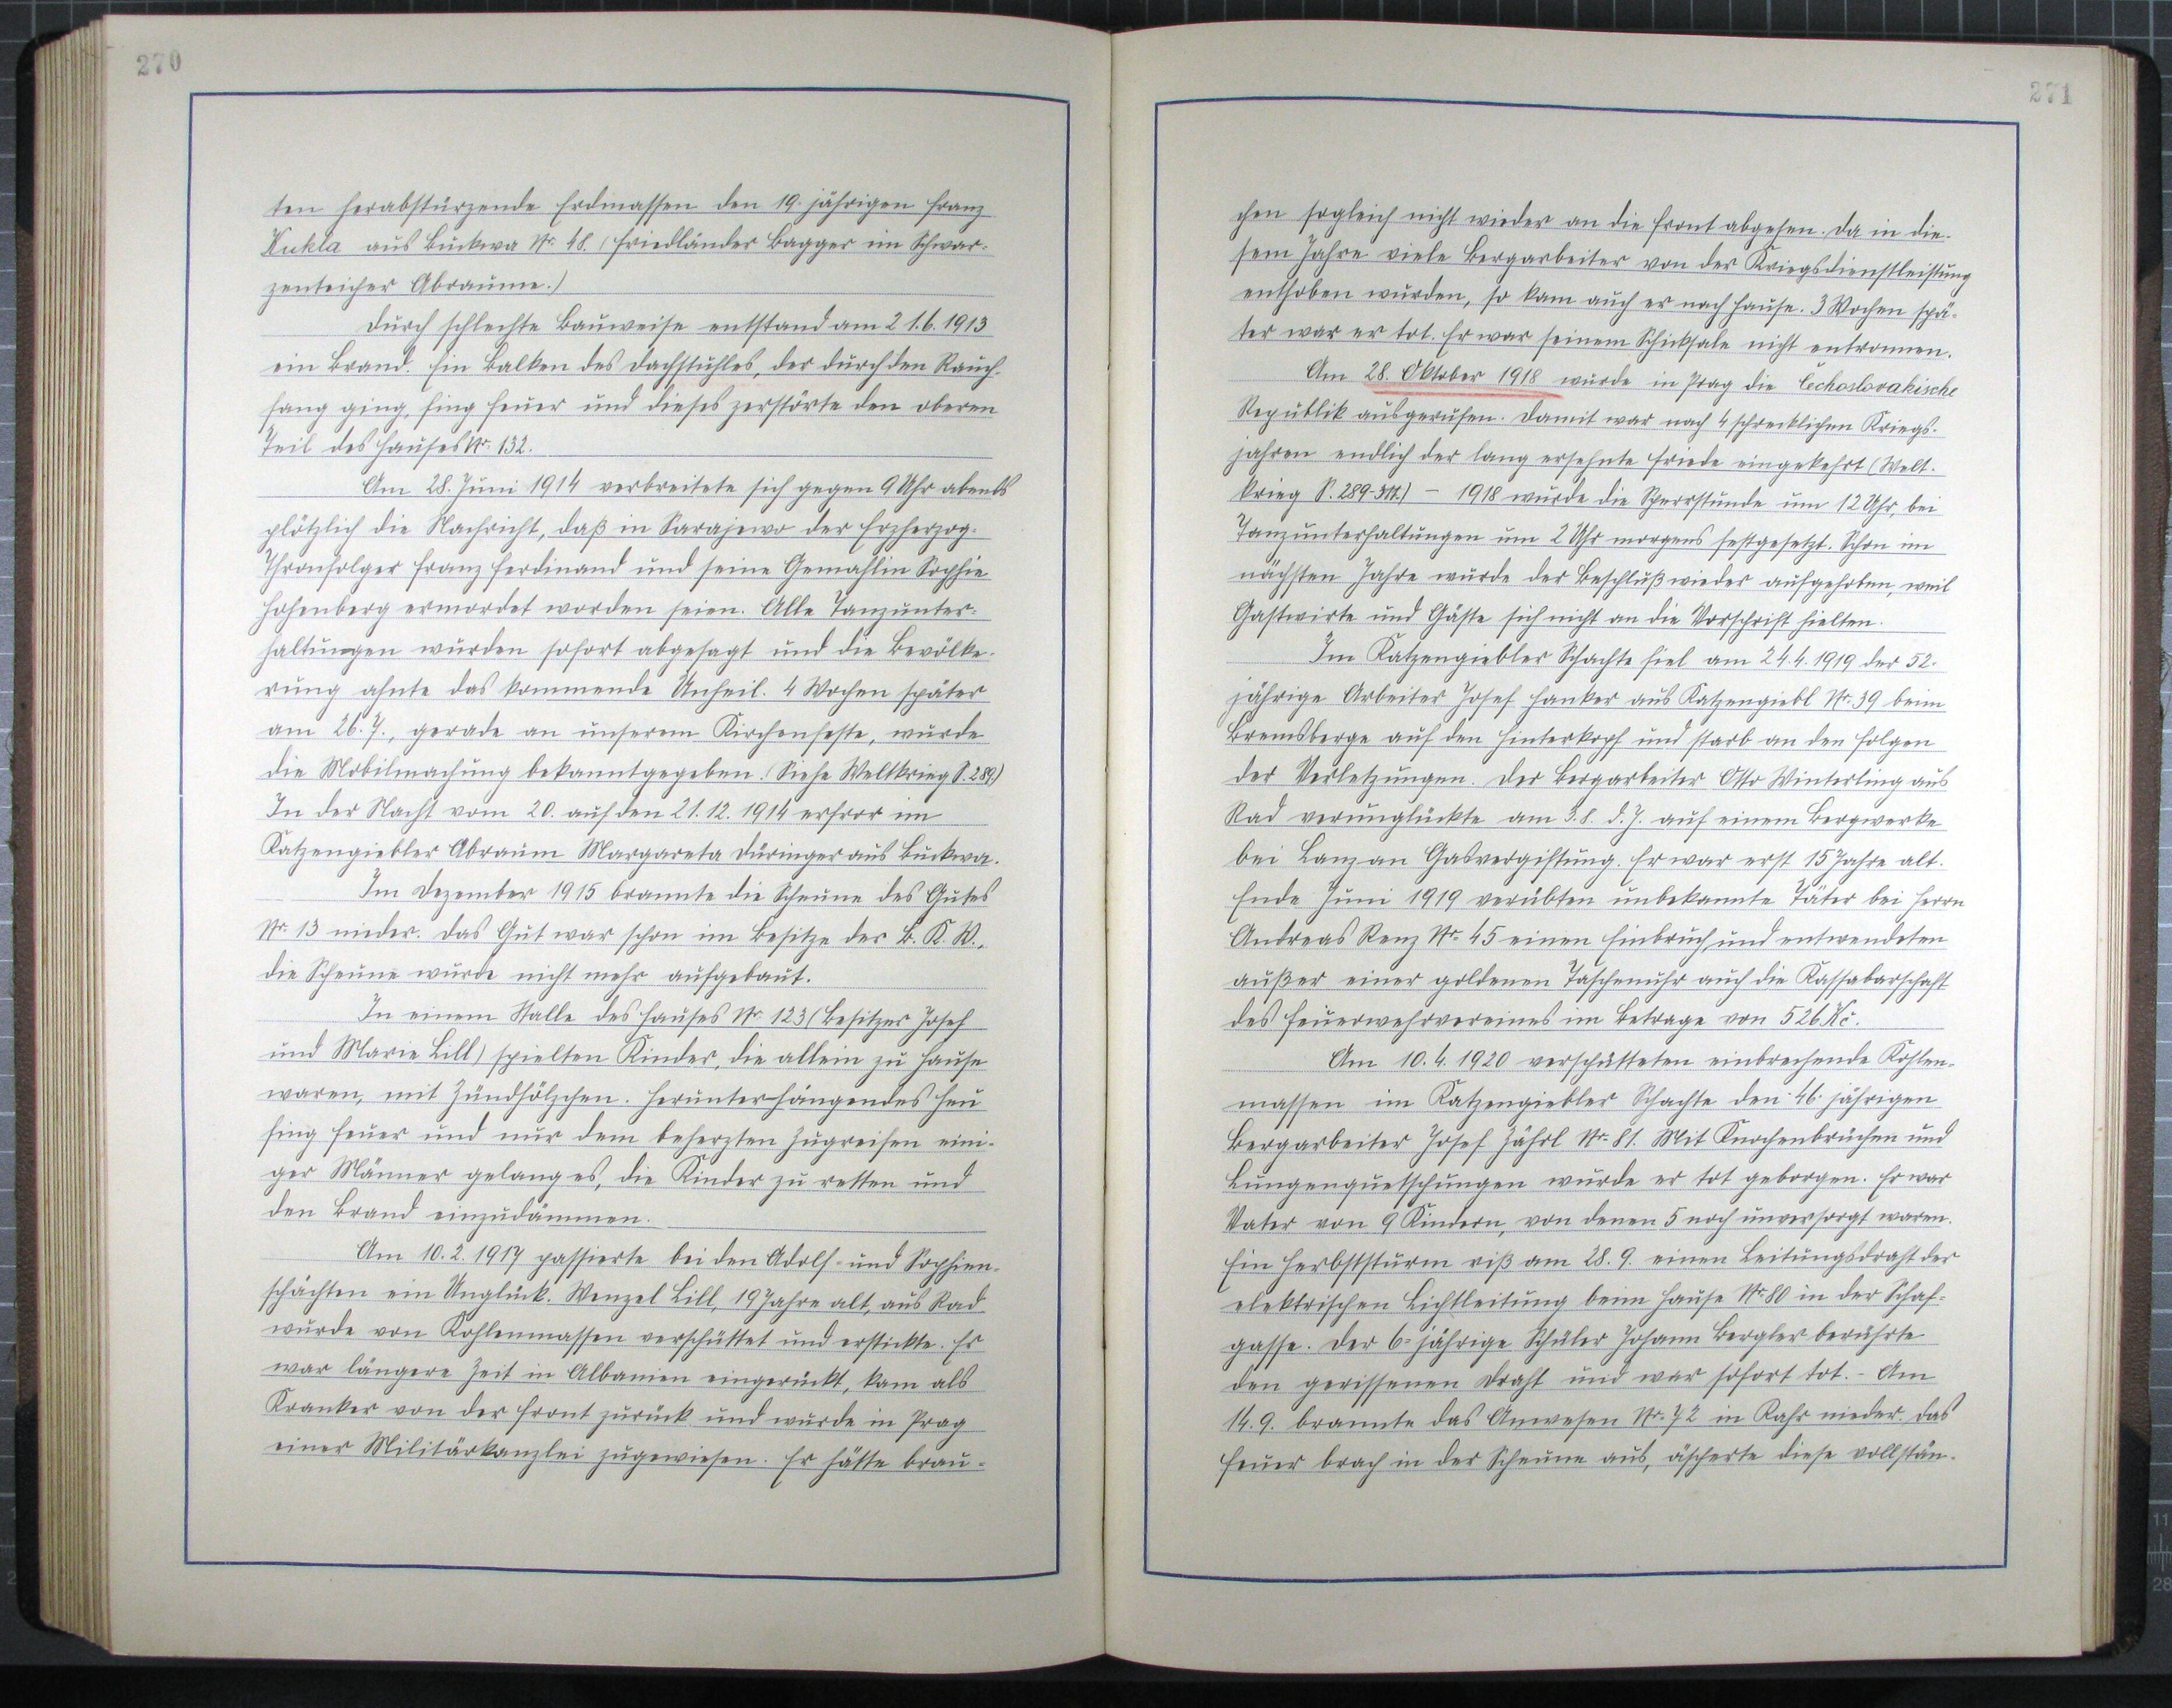 270
ten herabstürzende Erdmassen den 19. jährigen Franz
Kukla aus Buckwa Nr. 48. (Friedländer Bagger im Schwar-
zenteicher Abraume.)
Durch schlechte Bauweise entstand am 21.6.1913
ein Brand. Ein Balken des Dachstuhles, der durch den Rauch-
fang ging, fing Feuer und dieses zerstörte den oberen
Teil des Hauses Nr. 132.
Am 28. Juni 1914 verbreitete sich gegen 9 Uhr abends
plötzlich die Nachricht, daß in Sarajewo der Erzherzog-
Thronfolger Franz Ferdinand und seine Gemahlin Sophie
Hohenberg ermordet worden seien. Alle Tanzunter-
haltungen wurden sofort abgesagt und die Bevölke-
rung ahnte das kommende Unheil. 4 Wochen später
am 26.7., gerade an unserem Kirchenfeste, wurde
die Mobilmachung bekanntgegeben. (Siehe Weltkrieg S. 289.)
In der Nacht vom 20. auf den 21.12. 1914 erfror im
Katzengiebler Abraum Margareta Düringer aus Buckwa.
Im Dezember 1915 brannte die Scheune des Gutes
Nr. 13 nieder. Das Gut war schon im Besitze der B. K. W.,
die Scheune wurde nicht mehr aufgebaut.
In einem Stalle des Hauses Nr. 123 (Besitzer Josef
und Marie Lill) spielten Kinder, die allein zu Hause
waren, mit Zündhölzchen. Herunterhängendes Heu
fing Feuer und nur dem beherzten Zugreifen eini-
ger Männer gelang es, die Kinder zu retten und
den Brand einzudämmen.
Am 10.2.1917 passierte bei den Adolf- und Sophien-
schächten ein Unglück. Wenzel Lill, 19 Jahre alt, aus Rad
wurde von Kohlenmassen verschüttet und erstickte. Er
war längere Zeit in Albanien eingerückt, kam als
Kranker von der Front zurück und wurde in Prag
einer Militärkanzlei zugewiesen. Er hätte brau-
271
chen sogleich nicht wieder an die Front abgehen. Da in die-
sem Jahre viele Bergarbeiter von der Kriegsdienstleistung
enthoben wurden, so kam auch er nach Hause. 3 Wochen spä-
ter war er tot. Er war seinem Schicksale nicht entronnen.
Am 28. Oktober 1918 wurde in Prag die Čechoslovakische
Republik ausgerufen. Damit war nach 4 schrecklichen Kriegs-
jahren endlich der lang ersehnte Friede eingekehrt (Welt-
krieg S. 289-311.) - 1918 wurde die Sperrstunde um 12 Uhr, bei
Tanzunterhaltungen um 2 Uhr morgens festgesetzt. Schon im
nächsten Jahre wurde der Beschluß wieder aufgehoben, weil
Gastwirte und Gäste sich nicht an die Vorschrift hielten.
Im Katzengiebler Schachte fiel am 24.4.1919 der 52-
jährige Arbeiter Josef Hanker aus Katzengiebl Nr. 39 beim
Bremsberge auf den Hinterkopf und starb an den Folgen
der Verletzungen. Der Bergarbeiter Otto Winterling aus
Rad verunglückte am 3.8. d. J. auf einem Bergwerke
bei Lanz an Gasvergiftung. Er war erst 15 Jahre alt.
Ende Juni 1919 verübten unbekannte Täter bei Herrn
Andreas Renz Nr. 45 einen Einbruch und entwendeten
außer einer goldenen Taschenuhr auch die Kassabarschaft
des Feuerwehrvereines im Betrage von 526 Kč.
Am 10.4.1920 verschütteten einbrechende Kohlen-
massen im Katzengiebler Schachte den 46 jährigen
Bergarbeiter Josef Zährl Nr. 81. Mit Knochenbrüchen und
Lungenquetschungen wurde er tot geborgen. Er war
Vater von 9 Kindern, von denen 5 noch unversorgt waren.
Ein Herbststurm riß am 28.9. einen Leitungsdraht der
elektrischen Lichtleitung beim Hause Nr. 80 in der Schaf-
gasse. Der 6-jährige Schüler Johann Bergler berührte
den gerissenen Draht und war sofort tot. - Am
14.9. brannte das Anwesen Nr. 72 in Rahr nieder. Das
Feuer brach in der Scheune aus, äscherte diese vollstän-